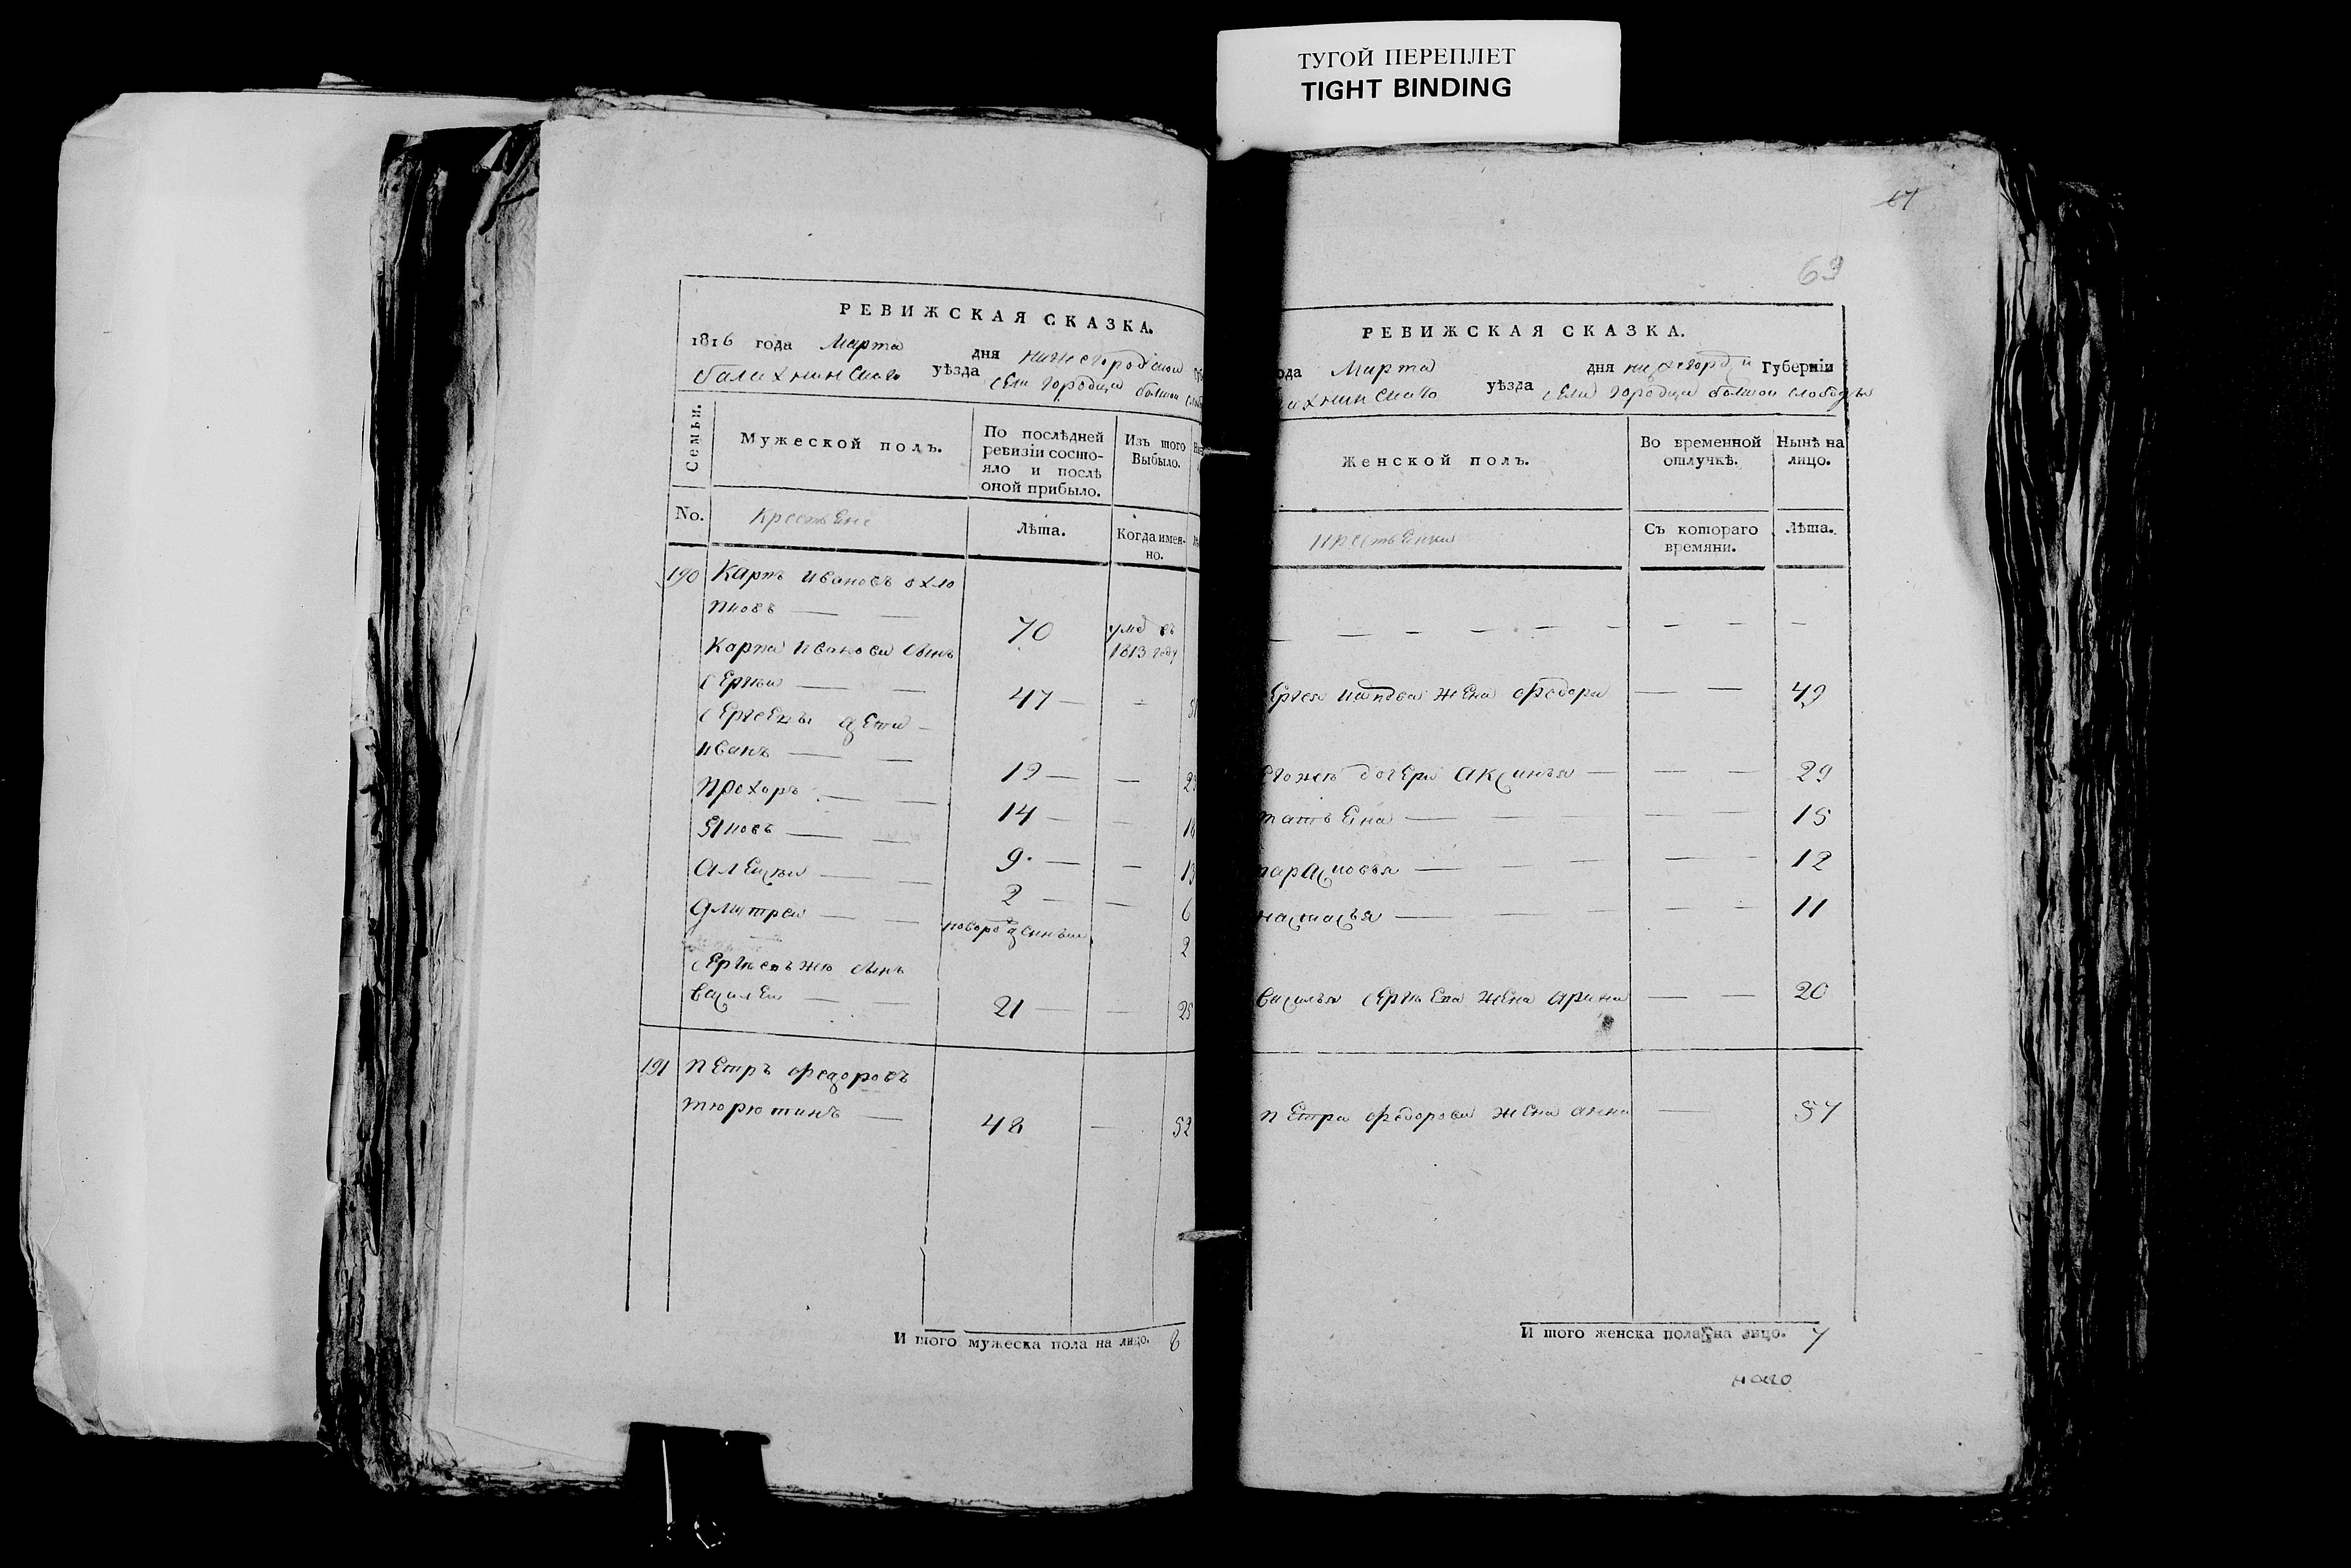 ТУГОЙ ПЕРЕПЛЕТ
TIGHT BINDING
РЕВИЖСКАЯ СКАЗКА.
1816 года Марта дня нижегородской
балахнинскаго уѣзда села городца болшои
Семьи.
Мужеской полъ.
По послѣдней ревизіи состояло и послѣ оной прибыло.
Изъ того Выбыло.
No.
крестьяне
Лѣта.
Когда имен-
но.
190 Карпъ ивановъ охло
пковъ — — 70 умѣ въ 1813 году
Карпа иванова сынъ
сергѣи — — 47 — —
сергеевы дети —
иванъ — — 19 — —
прохоръ — — 14 — —
яковъ — — 9 — —
алексѣи — — 2 — —
дмитреи — — новорожденныи 2
сергѣевъ же сынъ
василеи — — 21 — — 25
191 петръ федоровъ
тюрютинъ — 48 — 52
И того мужеска пола на лицо. 8
67
69
РЕВИЖСКАЯ СКАЗКА.
ода Марта дня Губерніи
ахнинскаго уѣзда села городца болшои слободы
Женской полъ.
Во временной отлучкѣ.
Нынѣ на лицо.
крестьянки
Съ котораго времяни.
Лѣта.
жена федора — — 49
его же дочери аксинья — — — 29
татьяна — — — — — — 15
парасковья — — — — — — 12
настасья — — — — — 11
василья сергѣева жена арина — — 20
петра федорова жена анна — 57
И того женска пола на лицо. 7